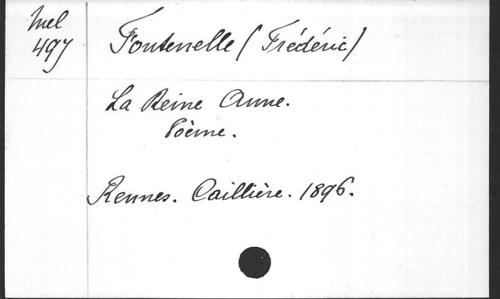 Mel
497
Fontenelle (Frédéric)
La Reine Anne.
Poème.
Rennes. Caillière. 1896.